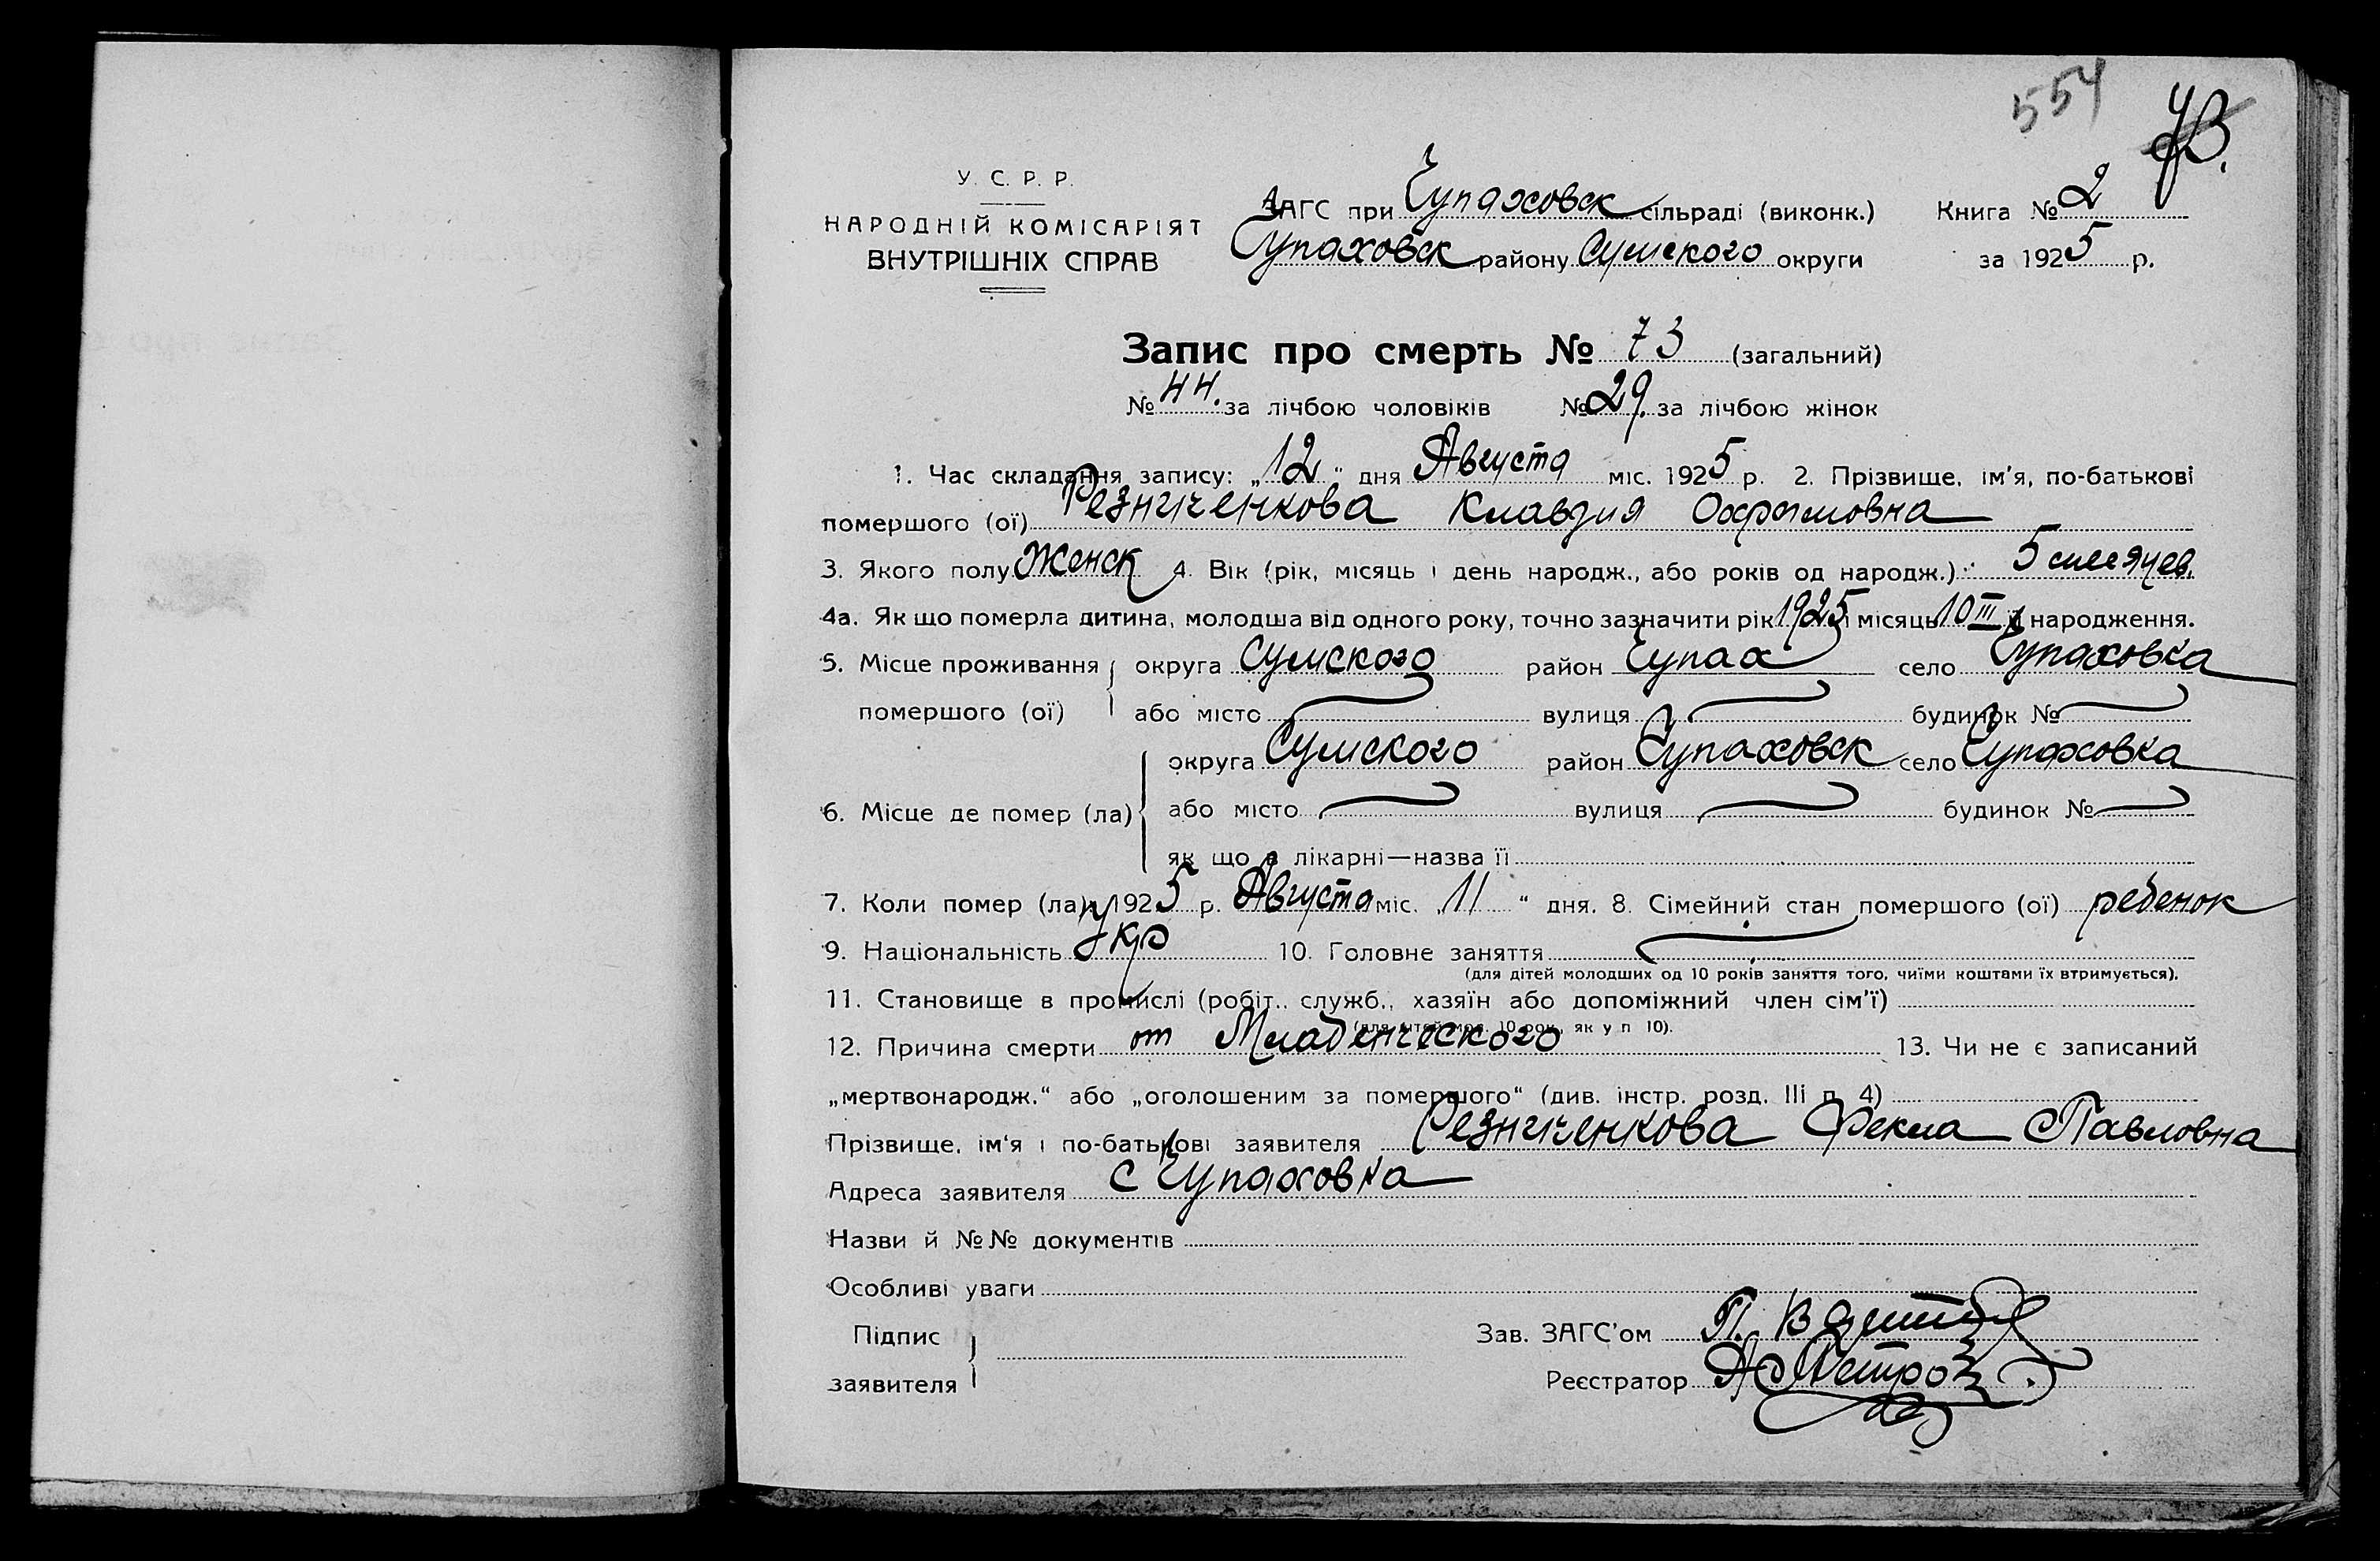 554
73.
У. С. Р. Р.
НАРОДНІЙ КОМІСАРІЯТ
ВНУТРІШНІХ СПРАВ
ЗАГС при Чупаховск сільраді (виконк.) Книга № 2
Чупаховск району Сумского округи за 1925 р.
Запис про смерть № 73 (загальний)
№ 44. за лічбою чоловіків № 29. за лічбою жінок
1. Час складання запису: „12“ дня Августа міс. 1925 р. 2. Прізвище, ім'я, по-батькові
помершого (ої) Резниченкова Клавдия Охримовна
3. Якого полу Женск 4. Вік (рік, місяць і день народж., або років од народж.) 5 месяцев.
4а. Як що померла дитина, молодша від одного року, точно зазначити рік 1925 і місяць 10 III її народження.
5. Місце проживання помершого (ої) округа Сумского район Чупах село Чупаховка
або місто вулиця будинок №
6. Місце де помер (ла) округа Сумского район Чупаховск село Чупаховка
або місто вулиця будинок №
як що в лікарні—назва її
7. Коли помер (ла) 1925 р. Августа міс. „11“ дня. 8. Сімейний стан помершого (ої) ребенок
9. Національність Укр 10. Головне заняття
(для дітей молодших од 10 років заняття того, чиїми коштами їх втримується).
11. Становище в промислі (робіт., служб., хазяїн або допоміжний член сім'ї)
(для дітей мол. 10 рок., як у п 10).
12. Причина смерти от Младенческого 13. Чи не є записаний
„мертвонародж.“ або „оголошеним за помершого“ (див. інстр. розд. III п. 4)
Прізвище, ім'я і по-батькові заявителя Резниченкова Фекла Павловна
Адреса заявителя с Чупаховка
Назви й №№ документів
Особливі уваги
Підпис заявителя
Зав. ЗАГС'ом П.
Реєстратор